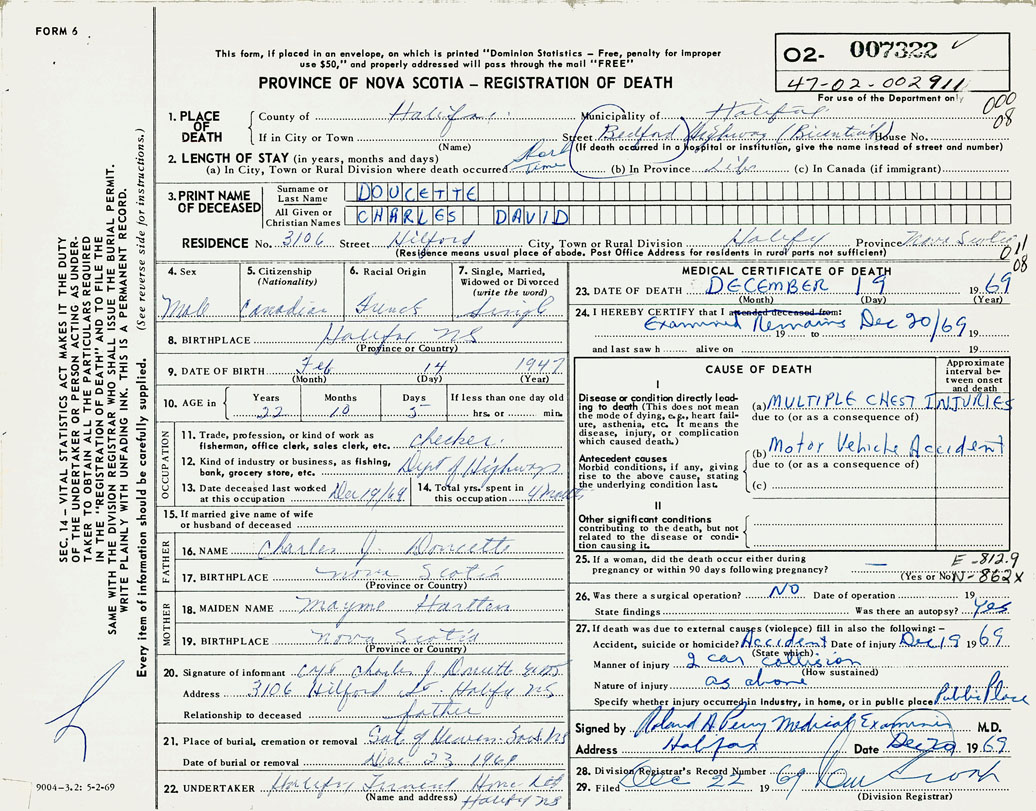 FORM 6
This form, if placed in an envelope, on which is printed "Dominion Statistics – Free, penalty for improper
use $50," and properly addressed will pass through the mail "FREE"
PROVINCE OF NOVA SCOTIA – REGISTRATION OF DEATH
02- 007322
47-02-002911
For use of the Department only
000
08
1. PLACE OF DEATH
County of Halifax Municipality of Halifax
If in City or Town (Name) Street Bedford Highway (Bicentennial) House No.
(If death occurred in a hospital or institution, give the name instead of street and number)
2. LENGTH OF STAY (in years, months and days)
(a) In City, Town or Rural Division where death occurred Short Time (b) In Province Life (c) In Canada (if immigrant)
3. PRINT NAME OF DECEASED
Surname or Last Name DOUCETTE
All Given or Christian Names CHARLES DAVID
RESIDENCE No. 3106 Street Hilford City, Town or Rural Division Halifax Province Nova Scotia
(Residence means usual place of abode. Post Office Address for residents in rural parts not sufficient)
011
08
4. Sex
Male
5. Citizenship (Nationality)
Canadian
6. Racial Origin
French
7. Single, Married, Widowed or Divorced (write the word)
Single
8. BIRTHPLACE Halifax NS
(Province or Country)
9. DATE OF BIRTH Feb 14 1947
(Month) (Day) (Year)
10. AGE in Years Months Days If less than one day old
22 10 5 hrs. or min.
OCCUPATION
11. Trade, profession, or kind of work as fisherman, office clerk, sales clerk, etc. checker
12. Kind of industry or business, as fishing, bank, grocery store, etc. Dept of Highways
13. Date deceased last worked at this occupation Dec 19/69
14. Total yrs. spent in this occupation 4 months
15. If married give name of wife or husband of deceased
FATHER
16. NAME Charles J. Doucette
17. BIRTHPLACE Nova Scotia
(Province or Country)
MOTHER
18. MAIDEN NAME Mayme Hartlen
19. BIRTHPLACE Nova Scotia
(Province or Country)
20. Signature of informant Charles J. Doucette
Address 3106 Hilford St. Halifax NS
Relationship to deceased father
21. Place of burial, cremation or removal Gate of Heaven
Date of burial or removal Dec 23 1969
22. UNDERTAKER Halifax Funeral Home Ltd
(Name and address) Halifax NS
MEDICAL CERTIFICATE OF DEATH
23. DATE OF DEATH DECEMBER 19 1969
(Month) (Day) (Year)
24. I HEREBY CERTIFY that I attended deceased from:
Examined Remains Dec 20/69
19 to 19
and last saw h alive on 19
CAUSE OF DEATH
Approximate interval between onset and death
I
Disease or condition directly leading to death (This does not mean the mode of dying, e.g., heart failure, asthenia, etc. It means the disease, injury, or complication which caused death.)
(a) MULTIPLE CHEST INJURIES
due to (or as a consequence of)
Antecedent causes
Morbid conditions, if any, giving rise to the above cause, stating the underlying condition last.
(b) Motor Vehicle Accident
due to (or as a consequence of)
(c)
II
Other significant conditions
contributing to the death, but not related to the disease or condition causing it.
25. If a woman, did the death occur either during pregnancy or within 90 days following pregnancy? —
(Yes or No)
E-812.9
N-862X
26. Was there a surgical operation? NO Date of operation 19
State findings Was there an autopsy? Yes
27. If death was due to external causes (violence) fill in also the following:–
Accident, suicide or homicide? Accident Date of injury Dec 19 1969
(State which)
Manner of injury 2 car collision
(How sustained)
Nature of injury as above
Specify whether injury occurred in industry, in home, or in public place Public Place
Signed by Roland A Perry Medical Examiner M.D.
Address Halifax Date Dec 20 1969
28. Division Registrar's Record Number
29. Filed Dec 22 1969
(Division Registrar)
SEC. 14 – VITAL STATISTICS ACT MAKES IT THE DUTY
OF THE UNDERTAKER OR PERSON ACTING AS UNDER-
TAKER TO OBTAIN ALL THE PARTICULARS REQUIRED
IN THE "REGISTRATION OF DEATH" AND TO FILE THE
SAME WITH THE DIVISION REGISTRAR WHO SHALL ISSUE THE BURIAL PERMIT.
WRITE PLAINLY WITH UNFADING INK. THIS IS A PERMANENT RECORD.
Every item of information should be carefully supplied. (See reverse side for instructions.)
9004-3.2: 5-2-69